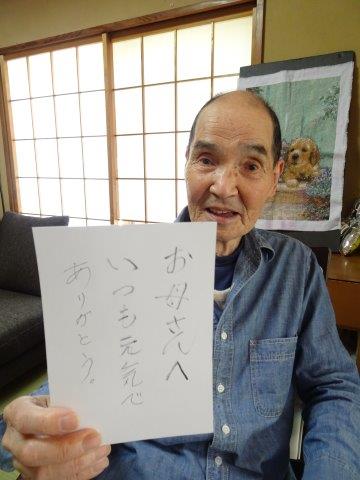 お母さんへ
いつも元気で
ありがとう。